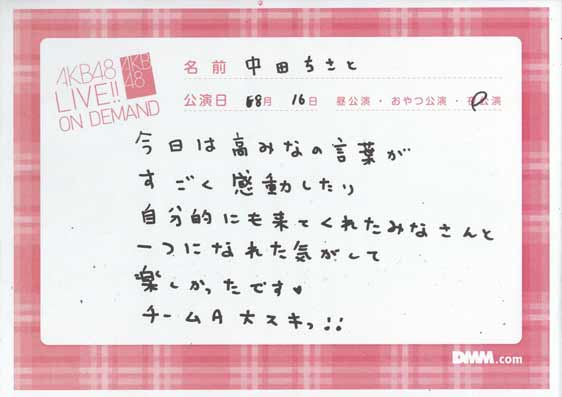 AKB48
LIVE!!
ON DEMAND
AKB
48
名前 中田ちさと
公演日 8月 16日 昼公演・おやつ公演・夜公演
今日は高みなの言葉が
すごく感動したり
自分的にも来てくれたみなさんと
一つになれた気がして
楽しかったです♥
チームA大スキっ!!
DMM.com